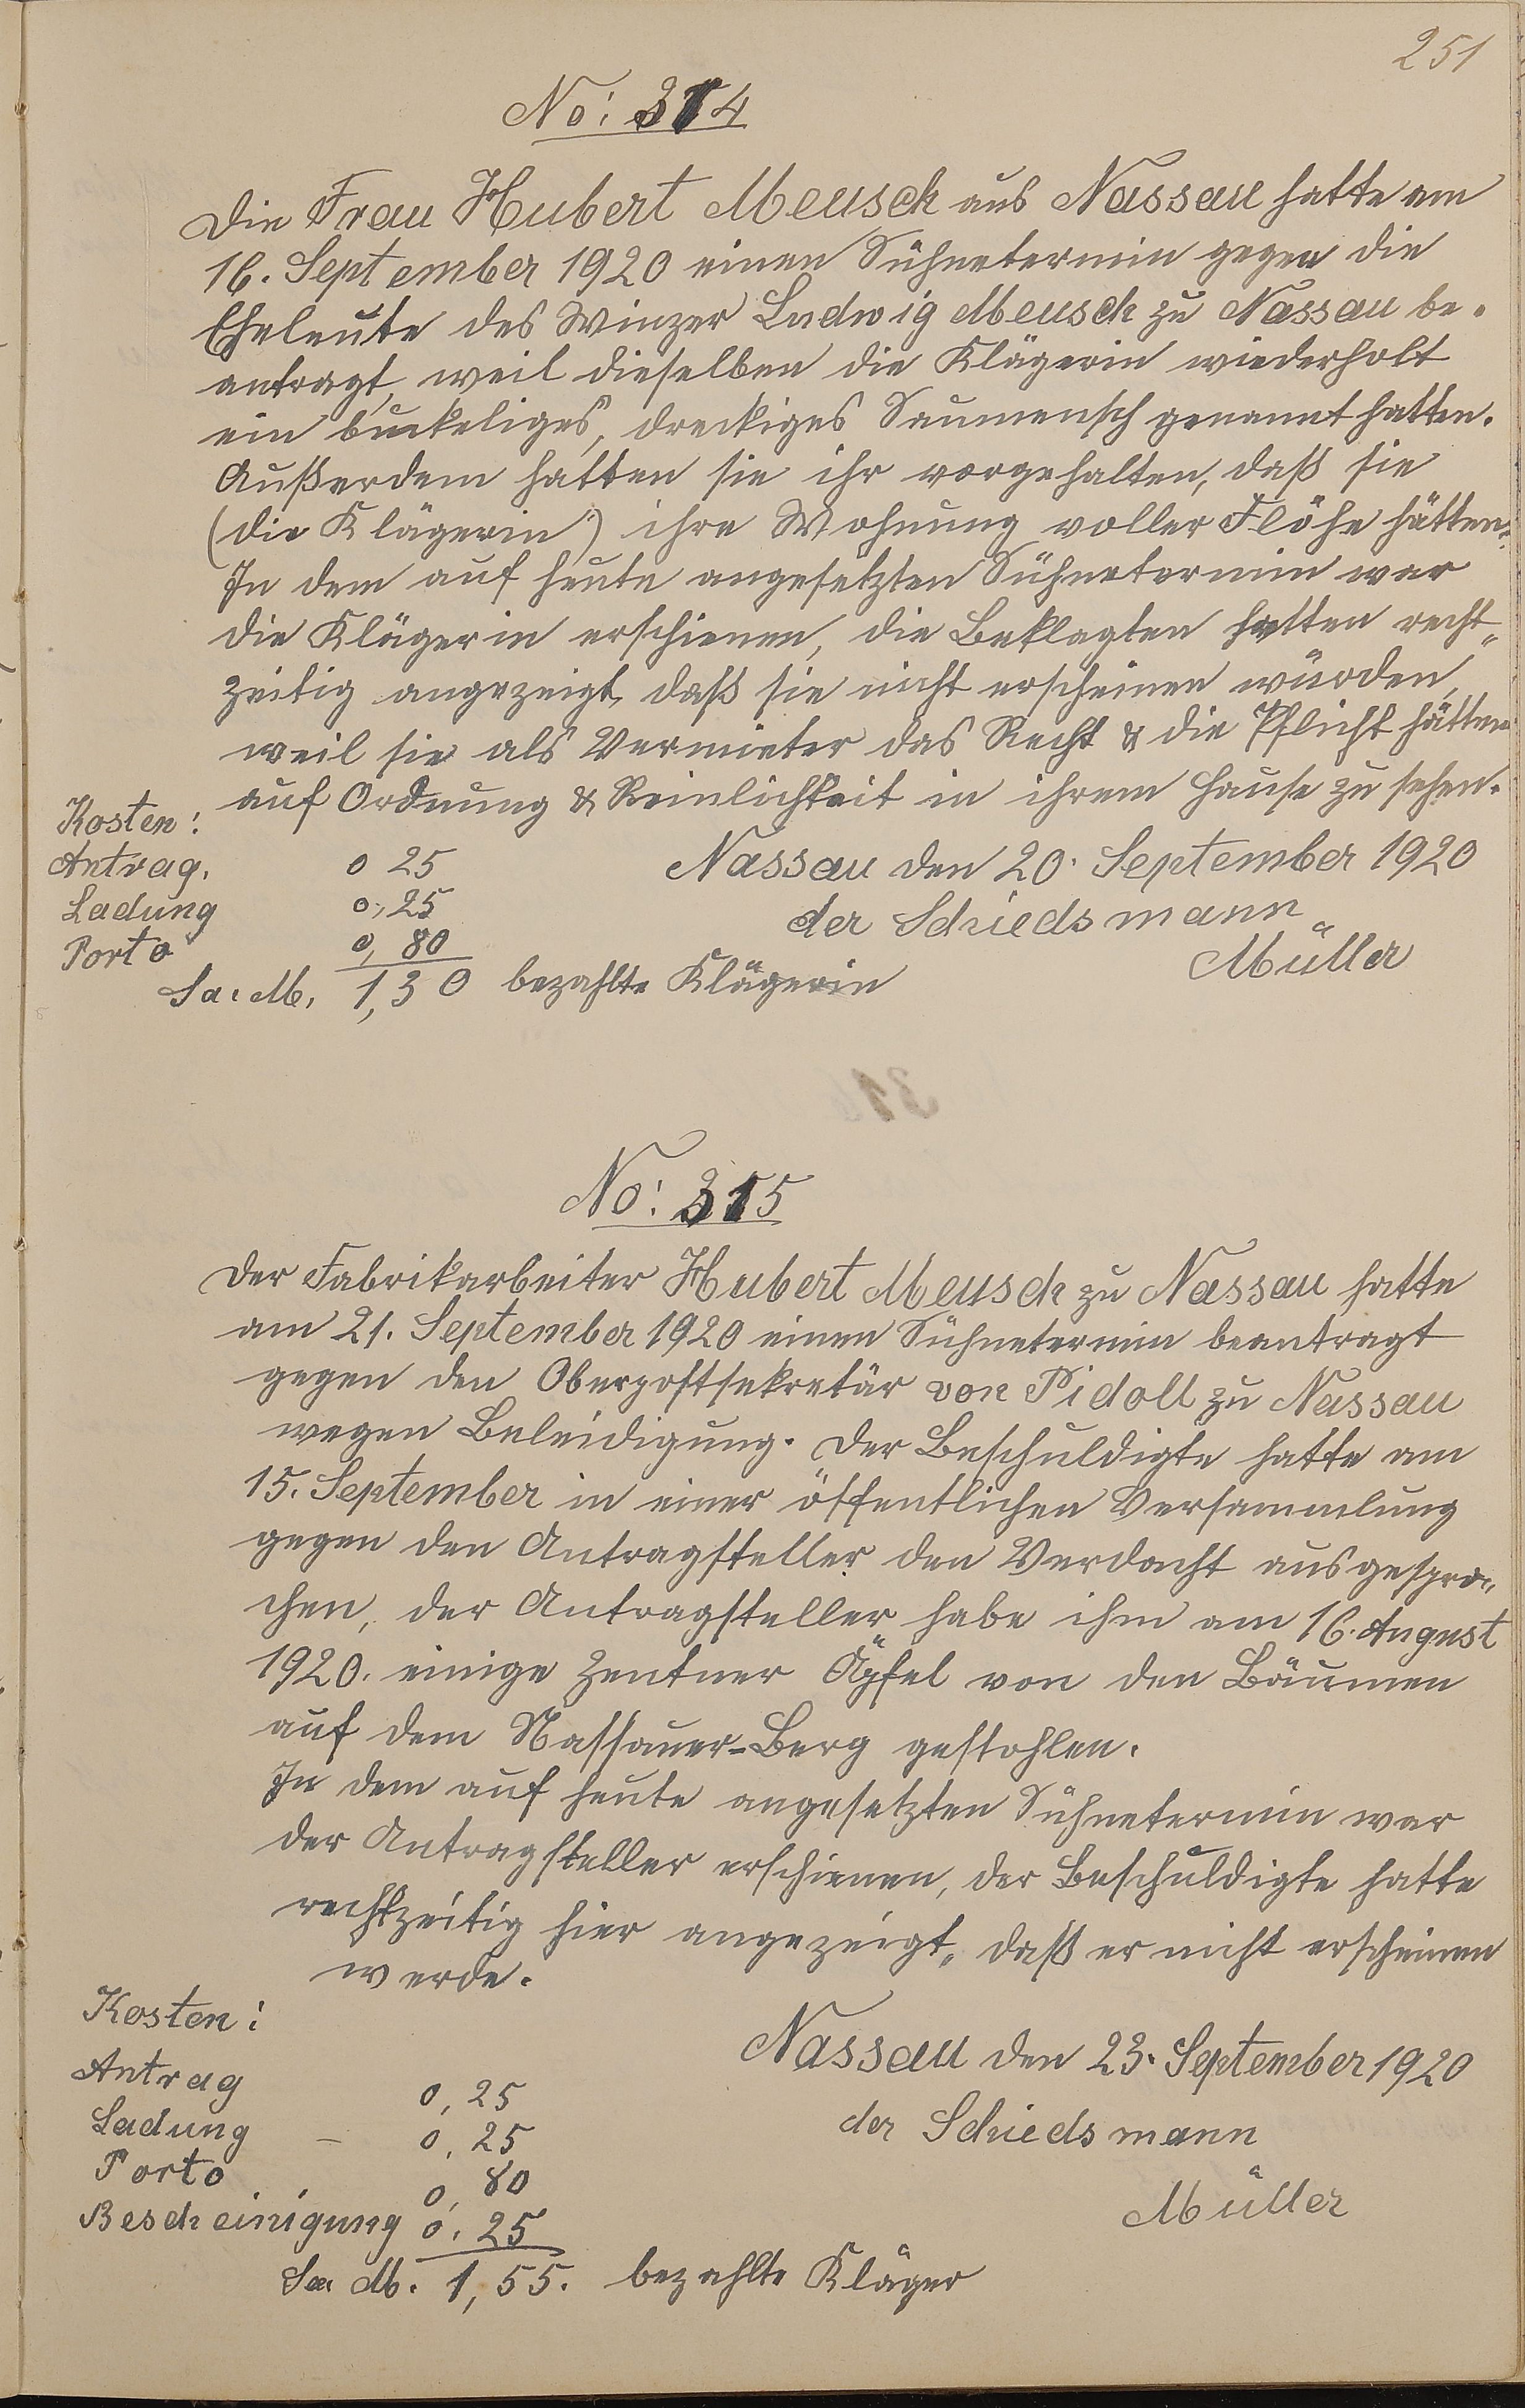 251
No: 314
Die Frau Hubert Meusch aus Nassau hatte am
16. September 1920 einen Sühnetermin gegen die
Eheleute des Winzer Ludwig Meusch zu Nassau be-
antragt, weil dieselben die Klägerin wiederholt
ein buckeliges, dreckiges Saumensch genannt hatten.
Außerdem hatten sie ihr vorgehalten, daß sie
(die Klägerin) ihre Wohnung voller Flöhe hätten.
In dem auf heute angesetzten Sühnetermin war
die Klägerin erschienen, die Beklagten hatten recht-
zeitig angezeigt, daß sie nicht erscheinen würden,
weil sie als Vermieter das Recht & die Pflicht hätten
auf Ordnung & Reinlichkeit in ihrem Hause zu sehen.
Kosten:
Antrag. 0 25
Ladung 0,25
Porto 0,80
Sa. M. 1,30 bezahlte Klägerin
Nassau den 20. September 1920
der Schiedsmann
Müller
No: 315
Der Fabrikarbeiter Hubert Meusch zu Nassau hatte
am 21. September 1920 einen Sühnetermin beantragt
gegen den Oberpostsekretär von Pidoll zu Nassau
wegen Beleidigung. Der Beschuldigte hatte am
15. September in einer öffentlichen Versammlung
gegen den Antragsteller den Verdacht ausgespro-
chen, der Antragsteller habe ihm am 16. August
1920. einige Zentner Äpfel von den Bäumen
auf dem Nassauer-Berg gestohlen.
In dem auf heute angesetzten Sühnetermin war
der Antragsteller erschienen, der Beschuldigte hatte
rechtzeitig hier angezeigt, daß er nicht erscheinen
werde.
Kosten:
Antrag 0,25
Ladung – 0,25
Porto 0,80
Bescheinigung 0,25
Sa. M. 1,55. bezahlte Kläger
Nassau den 23. September 1920
der Schiedsmann
Müller